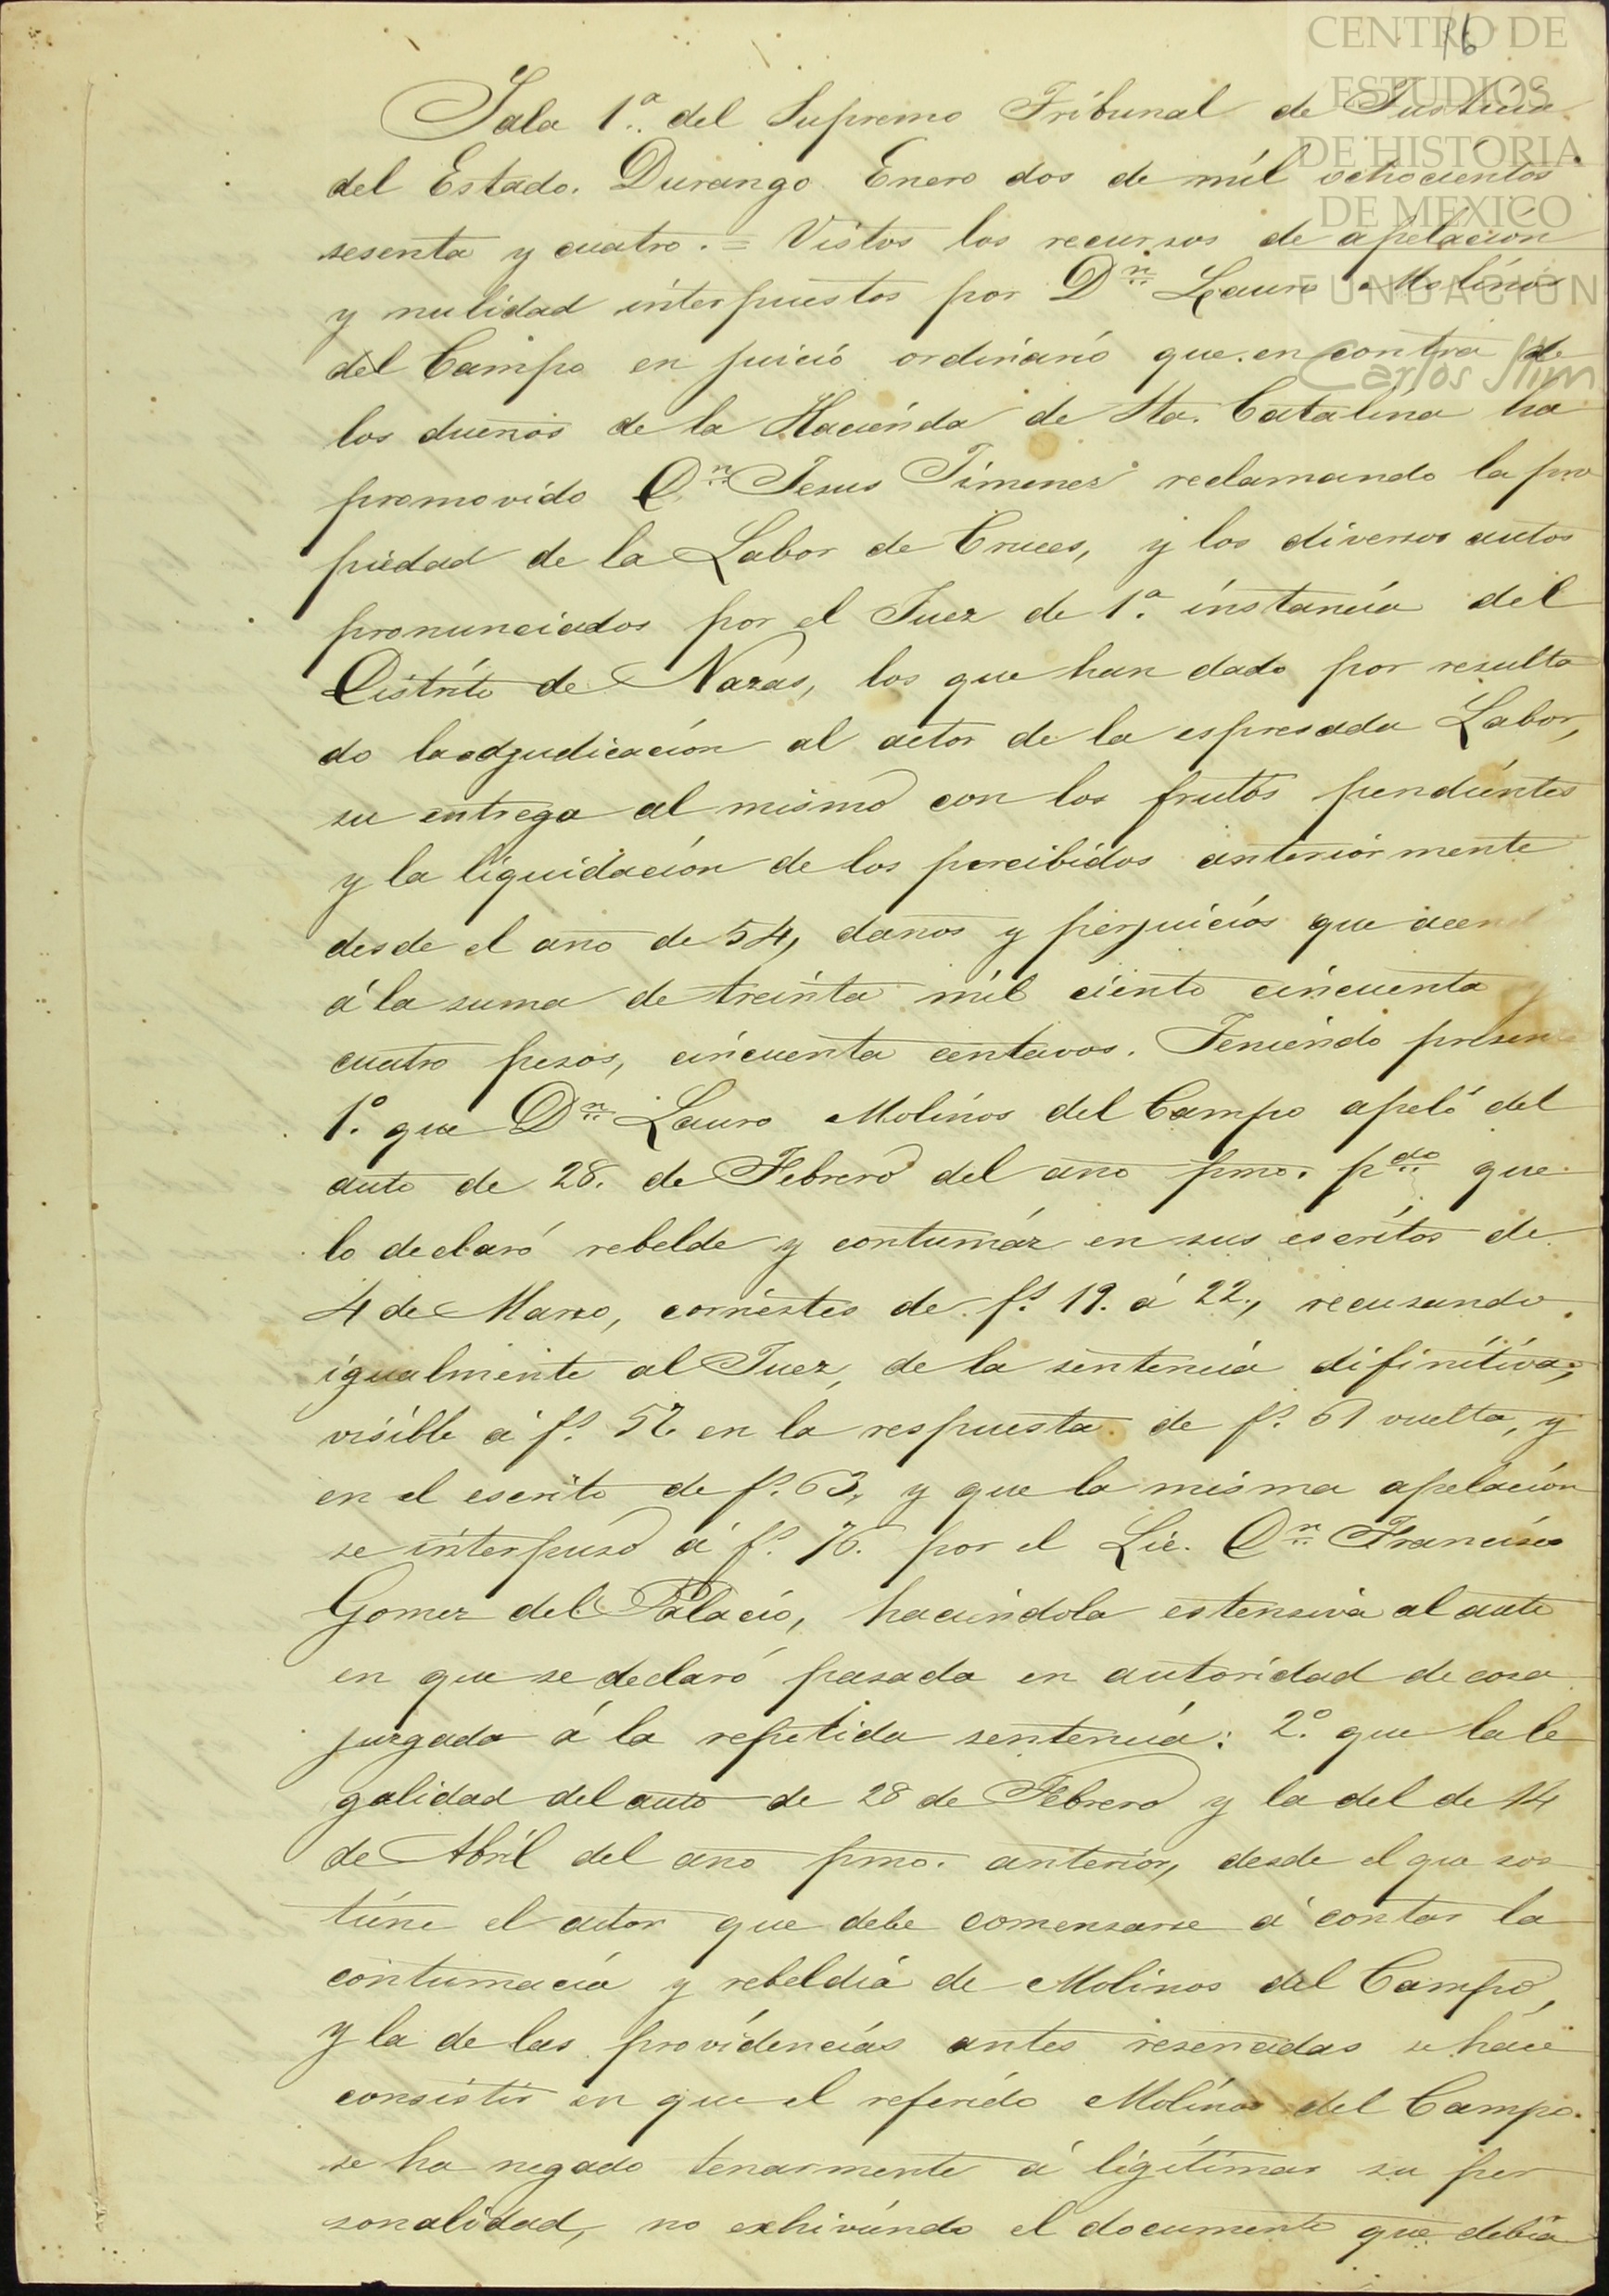 16
CENTRO DE
ESTUDIOS
DE HISTORIA
DE MEXICO
FUNDACIÓN
Carlos Slim
Sala 1ª. del Supremo Tribunal de Justicia
del Estado. Durango Enero dos de mil ochocientos
sesenta y cuatro. = Vistos los recursos de apelacion
y nulidad interpuestos por Dn. Lauro Molinos
del Campo en juicio ordinario que en contra de
los dueños de la Hacienda de Sta. Catalina ha
promovido Dn. Jesus Jimenez reclamando la pro
piedad de la Labor de Cruces, y los diversos autos
pronunciados por el Juez de 1ª. instancia del
Distrito de Nazas, los que han dado por resulta
do la adjudicacion al actor de la espresada Labor,
su entrega al mismo con los frutos pendientes
y la liquidacion de los percibidos anteriormente
desde el año de 54, daños y perjuicios que
á la suma de treinta mil ciento cincuenta y
cuatro pesos, cincuenta centavos. Teniendo presen
1º. que Dn. Lauro Molinos del Campo apeló del
auto de 28. de Febrero del año pmo. pdo. que
lo declaró rebelde y contumáz en sus escritos de
4 de Marzo, corrientes de fs. 19. á 22., recusando
igualmente al Juez, de la sentencia difinitiva,
visible á f. 57. en la respuesta de f. 61 vuelta, y
en el escrito de f. 63, y que la misma apelacion
se interpuso á f. 76. por el Lic. Dn. Francisco
Gomez del Palacio, haciendola estensiva al auto
en que se declaró pasada en autoridad de cosa
juzgada á la repetida sentencia: 2º. que la le
galidad del auto de 28 de Febrero y la del de 14
de Abril del año pmo. anterior, desde el que sos
tiene el actor que debe comensarse á contar la
contumacia y rebeldia de Molinos del Campo,
y la de las providencias antes reseñadas se hace
consistir en que el referido Molinos del Campo
se ha negado tenazmente á ligitimar su per
sonalidad, no exhiviendo el documento que debia